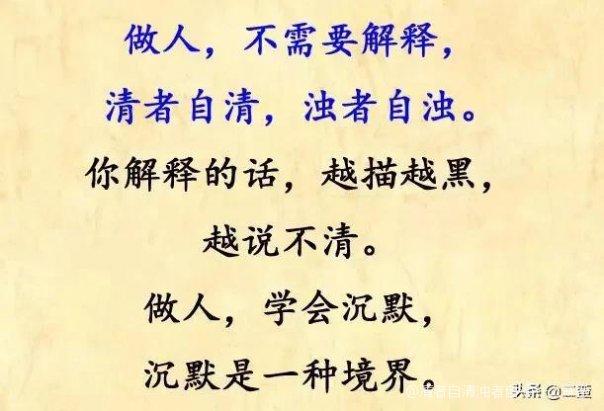 做人，不需要解释，
清者自清，浊者自浊。
你解释的话，越描越黑，
越说不清。
做人，学会沉默，
沉默是一种境界。
头条 @二姬